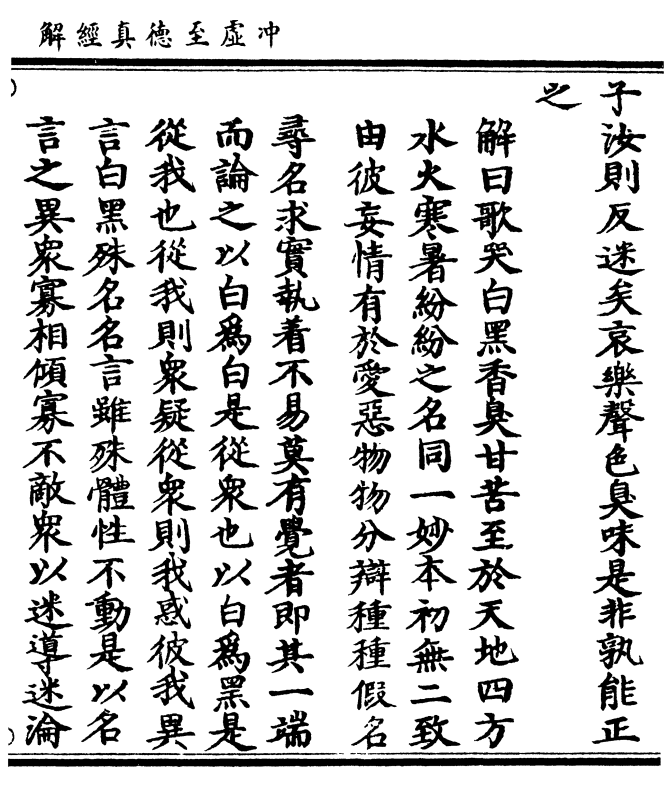 冲虛至德真經解
子汝則反迷矣哀樂聲色臭味是非孰能正
之
解曰歌哭白黑香臭甘苦至於天地四方
水火寒暑紛紛之名同一妙本初無二致
由彼妄情有於愛惡物物分辯種種假名
尋名求實執着不易莫有覺者即其一端
而論之以白爲白是從衆也以白爲黑是
從我也從我則衆疑從衆則我惑彼我異
言白黑殊名名言雖殊體性不動是以名
言之異衆寡相傾寡不敵衆以迷導迷淪